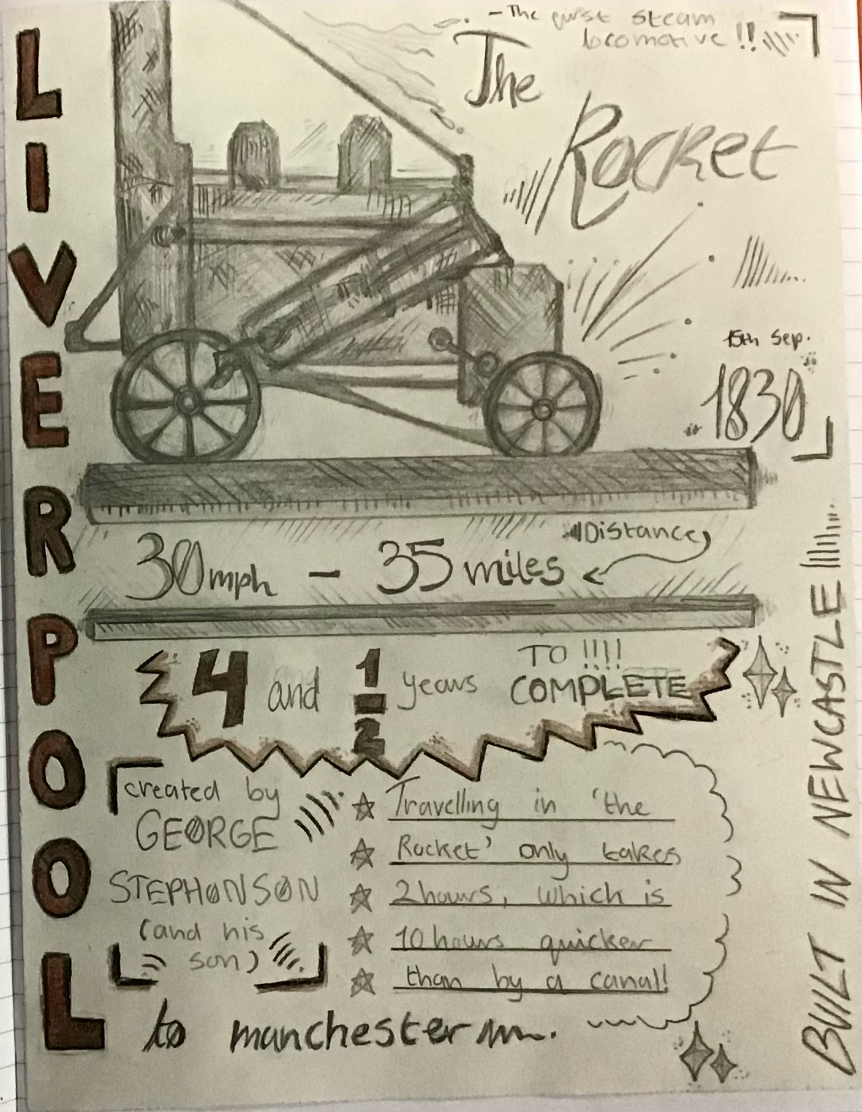 LIVERPOOL
- The first steam
locomotive !!
The
Rocket
15th Sep.
1830
Distance
30mph - 35 miles
4 and 1/2 years TO !!!!
COMPLETE
created by
GEORGE
STEPHONSON
(and his
son)
Travelling in 'the
Rocket' only takes
2 hours, which is
10 hours quicker
than by a canal!
to manchester
BUILT IN NEWCASTLE